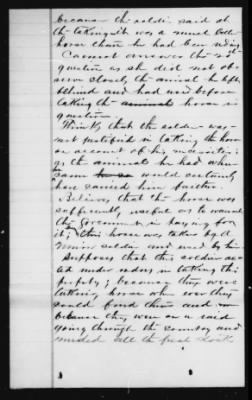 because the soldier said at
the taking it was a much better
horse than he had been riding
Cannot answer the 20th
question as she did not ob-
serve closely the animal he left
behind and had used before
taking the animal horse in
question.
Thinks that the soldier was
not justified in taking the horse
on account of his necessities
as the animal he had when
came would certainly
have carried him further.
Believes that the horse was
sufficiently useful as to warrant
the Government in paying for
it; this horse was taken by a
Union soldier and used by him
Supposes that this soldier ac-
ted under orders in taking this
property; because they were
taking horses wherever they
could find them and
because they were on a raid
going through the country and
needed all the fresh stock